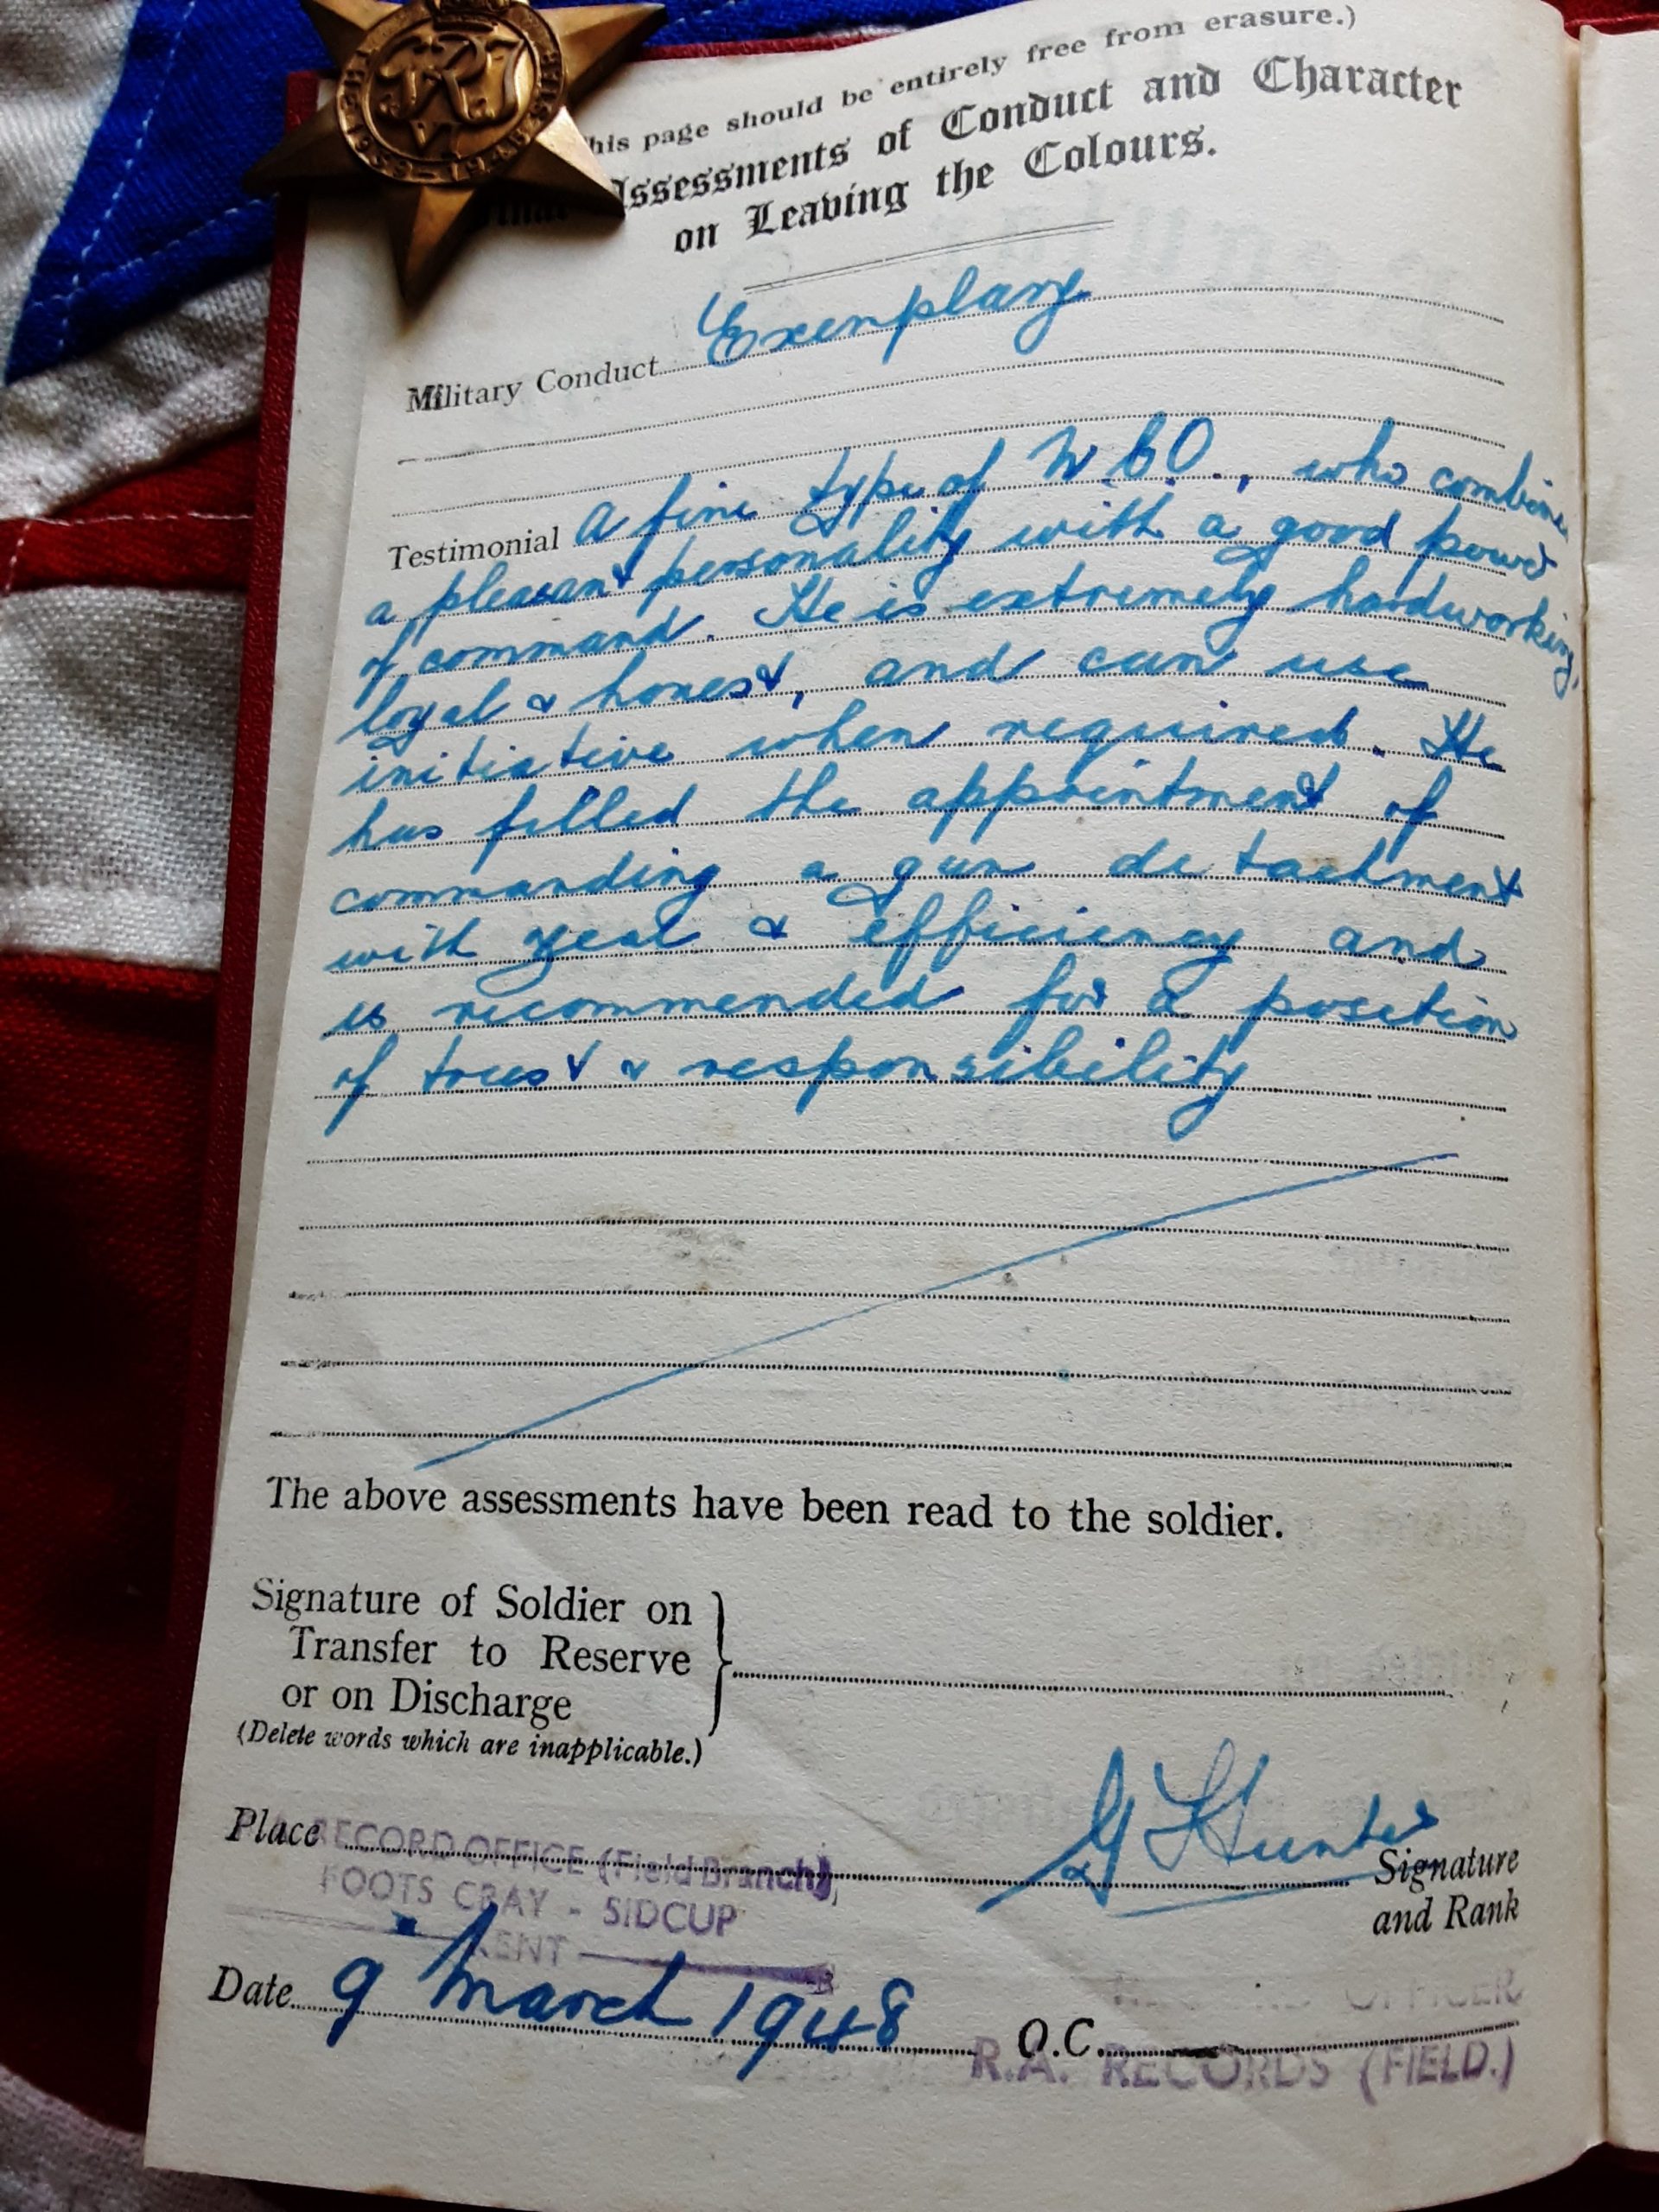 1939-1945 STAR
his page should be entirely free from erasure.)
Final Assessments of Conduct and Character
on Leaving the Colours.
Military Conduct Exemplary
Testimonial A fine type of N.C.O., who combines
a pleasant personality with a good power
of command. He is extremely hardworking,
loyal & honest, and can use
initiative when required. He
has filled the appointment of
commanding a gun detachment
with zeal & efficiency and
is recommended for a position
of trust & responsibility
The above assessments have been read to the soldier.
Signature of Soldier on
Transfer to Reserve
or on Discharge
(Delete words which are inapplicable.)
Place RECORD OFFICE (Field Branch),
FOOTS CRAY - SIDCUP
KENT
G Hunter
Signature
and Rank
Date 9 March 1948
O.C.
OFFICER
R.A. RECORDS (FIELD.)